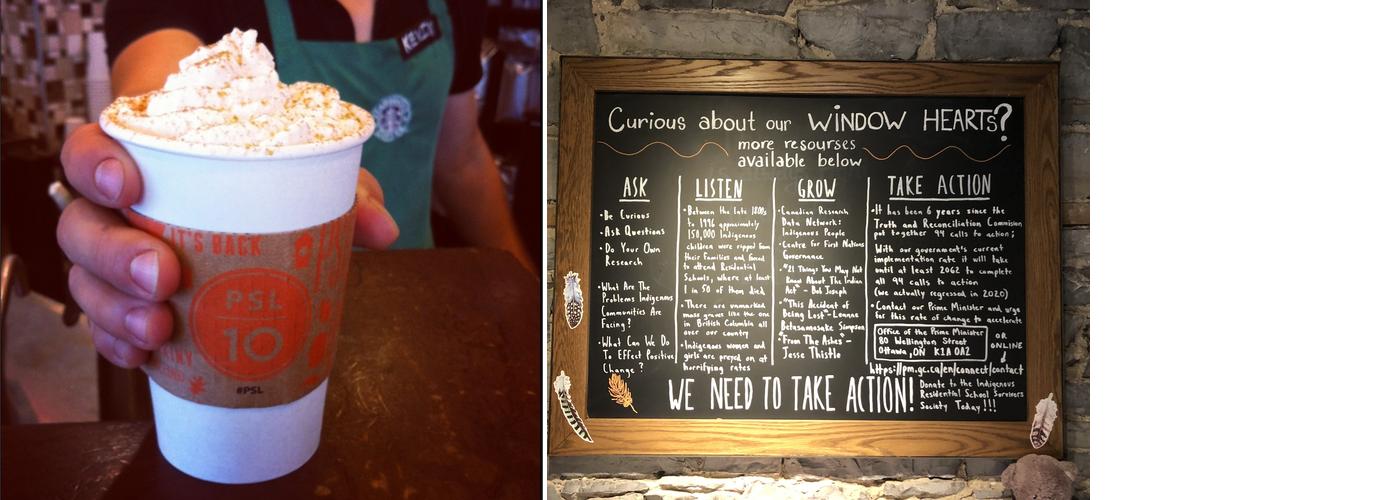 KENZY
IT'S BACK
PSL
10
#PSL
Curious about our WINDOW HEARTS?
more resourses
available below
ASK
• Be Curious
• Ask Questions
• Do Your Own
Research
• What Are The
Problems Indigenous
Communities Are
Facing?
• What Can We Do
To Effect Positive
Change?
LISTEN
• Between the late 1800s
to 1996 approximately
150,000 Indigenous
children were ripped from
their Families and forced
to attend Residential
Schools, where at least
1 in 50 of them died
• There are unmarked
mass graves like the one
in British Columbia all
over our country
• Indigenous women and
girls are preyed on at
horrifying rates
GROW
• Canadian Research
Data Network:
Indigenous People
• Centre for First Nations
Governance
• "21 Things You May Not
Know About The Indian
Act" - Bob Joseph
• "This Accident of
Being Lost" - Leanne
Betasamosake Simpson
• "From The Ashes" -
Jesse Thistle
TAKE ACTION
• It has been 6 years since the
Truth and Reconciliation Commision
put together 94 calls to action;
With our government's current
implementation rate it will take
until at least 2062 to complete
all 94 calls to action
(we actually regressed in 2020)
• Contact our Prime Minister and urge
for this rate of change to accelerate
Office of the Prime Minister
80 Wellington Street
Ottawa, ON K1A 0A2
OR
ONLINE
https://pm.gc.ca/en/connect/contact
Donate to the Indigenous
Residential School Survivors
Society Today!!!
WE NEED TO TAKE ACTION!